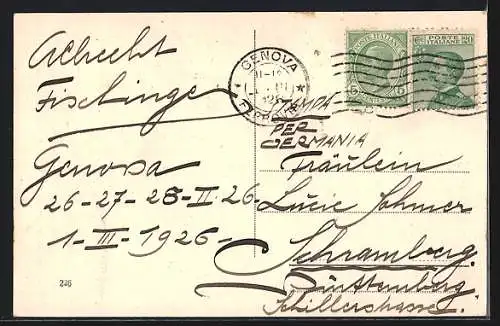 Albrecht
Fischinger
Genova
26-27-28-II 26.
1-III-1926-
226
GENOVA
FERROVIA
POSTE ITALIANE
5 5
POSTE
ITALIANE
STAMPA
PER
GERMANIA
Fräulein
Lucie
Schramberg.
Württemberg.
Schillerstrasse.